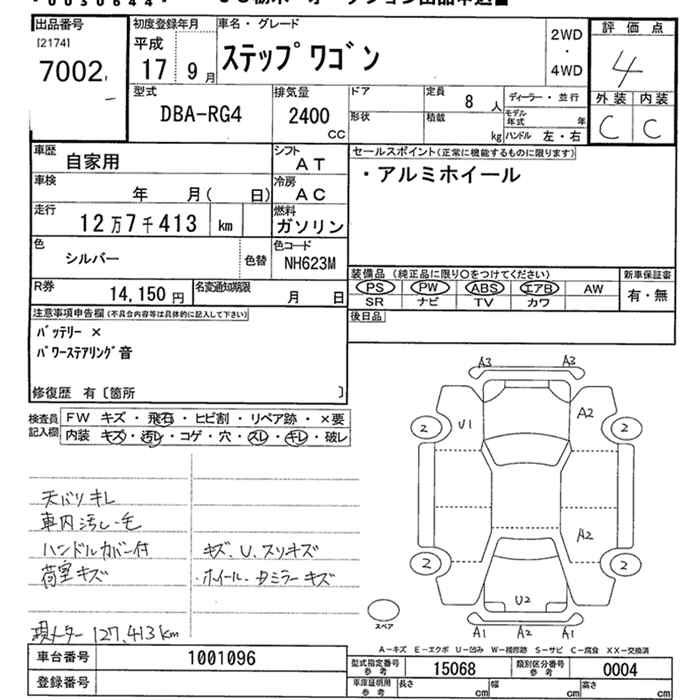 出品番号
[2174]
7002
初度登録年月
平成
17 9月
車名・グレード
ステップワゴン
2WD
・
4WD
評価点
4
外装 内装
C C
型式
DBA-RG4
排気量
2400
CC
ドア
定員 8 人
形状
積載 kg
ディーラー・並行
モデル年式 年
ハンドル 左・右
車歴 自家用
シフト AT
車検 年 月( 日)
冷房 AC
走行 12万7千413 km
燃料 ガソリン
色 シルバー
色替
色コード NH623M
R券 14,150円
名変通知期限 月 日
セールスポイント(正常に機能するものに限ります)
・アルミホイール
装備品 (純正品に限り○をつけてください)
PS PW ABS エアB AW
SR ナビ TV カワ
新車保証書
有・無
後日品
注意事項申告欄(不具合内容等は具体的に記入して下さい)
バッテリー ×
パワーステアリング音
修復歴 有〔箇所 〕
検査員記入欄
FW キズ・飛石・ヒビ割・リペア跡・×要
内装 キズ・汚レ・コゲ・穴・スレ・キレ・破レ
天バリキレ
車内汚し・毛
ハンドルカバー付
荷室キズ
キズ、U、スリキズ
・ホイール・ミラーキズ
現メーター 127,413km
A3 A3
U1 A2
2 2
A2
2 2
U2
A1 A2 A1
スペア
A-キズ E-エクボ U-凹み W-補修跡 S-サビ C-腐食 XX-交換済
車台番号 1001096
登録番号
型式指定番号 参考 15068
類別区分番号 参考 0004
車庫証明用 参考
長さ cm 幅 cm 高さ cm